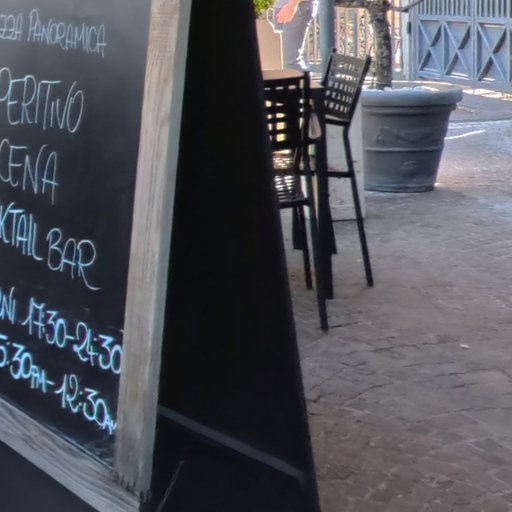 ZZA PANORAMICA
PERITIVO
CENA
KTAIL BAR
NI 17:30-24:30
5:30PM-12:30AM